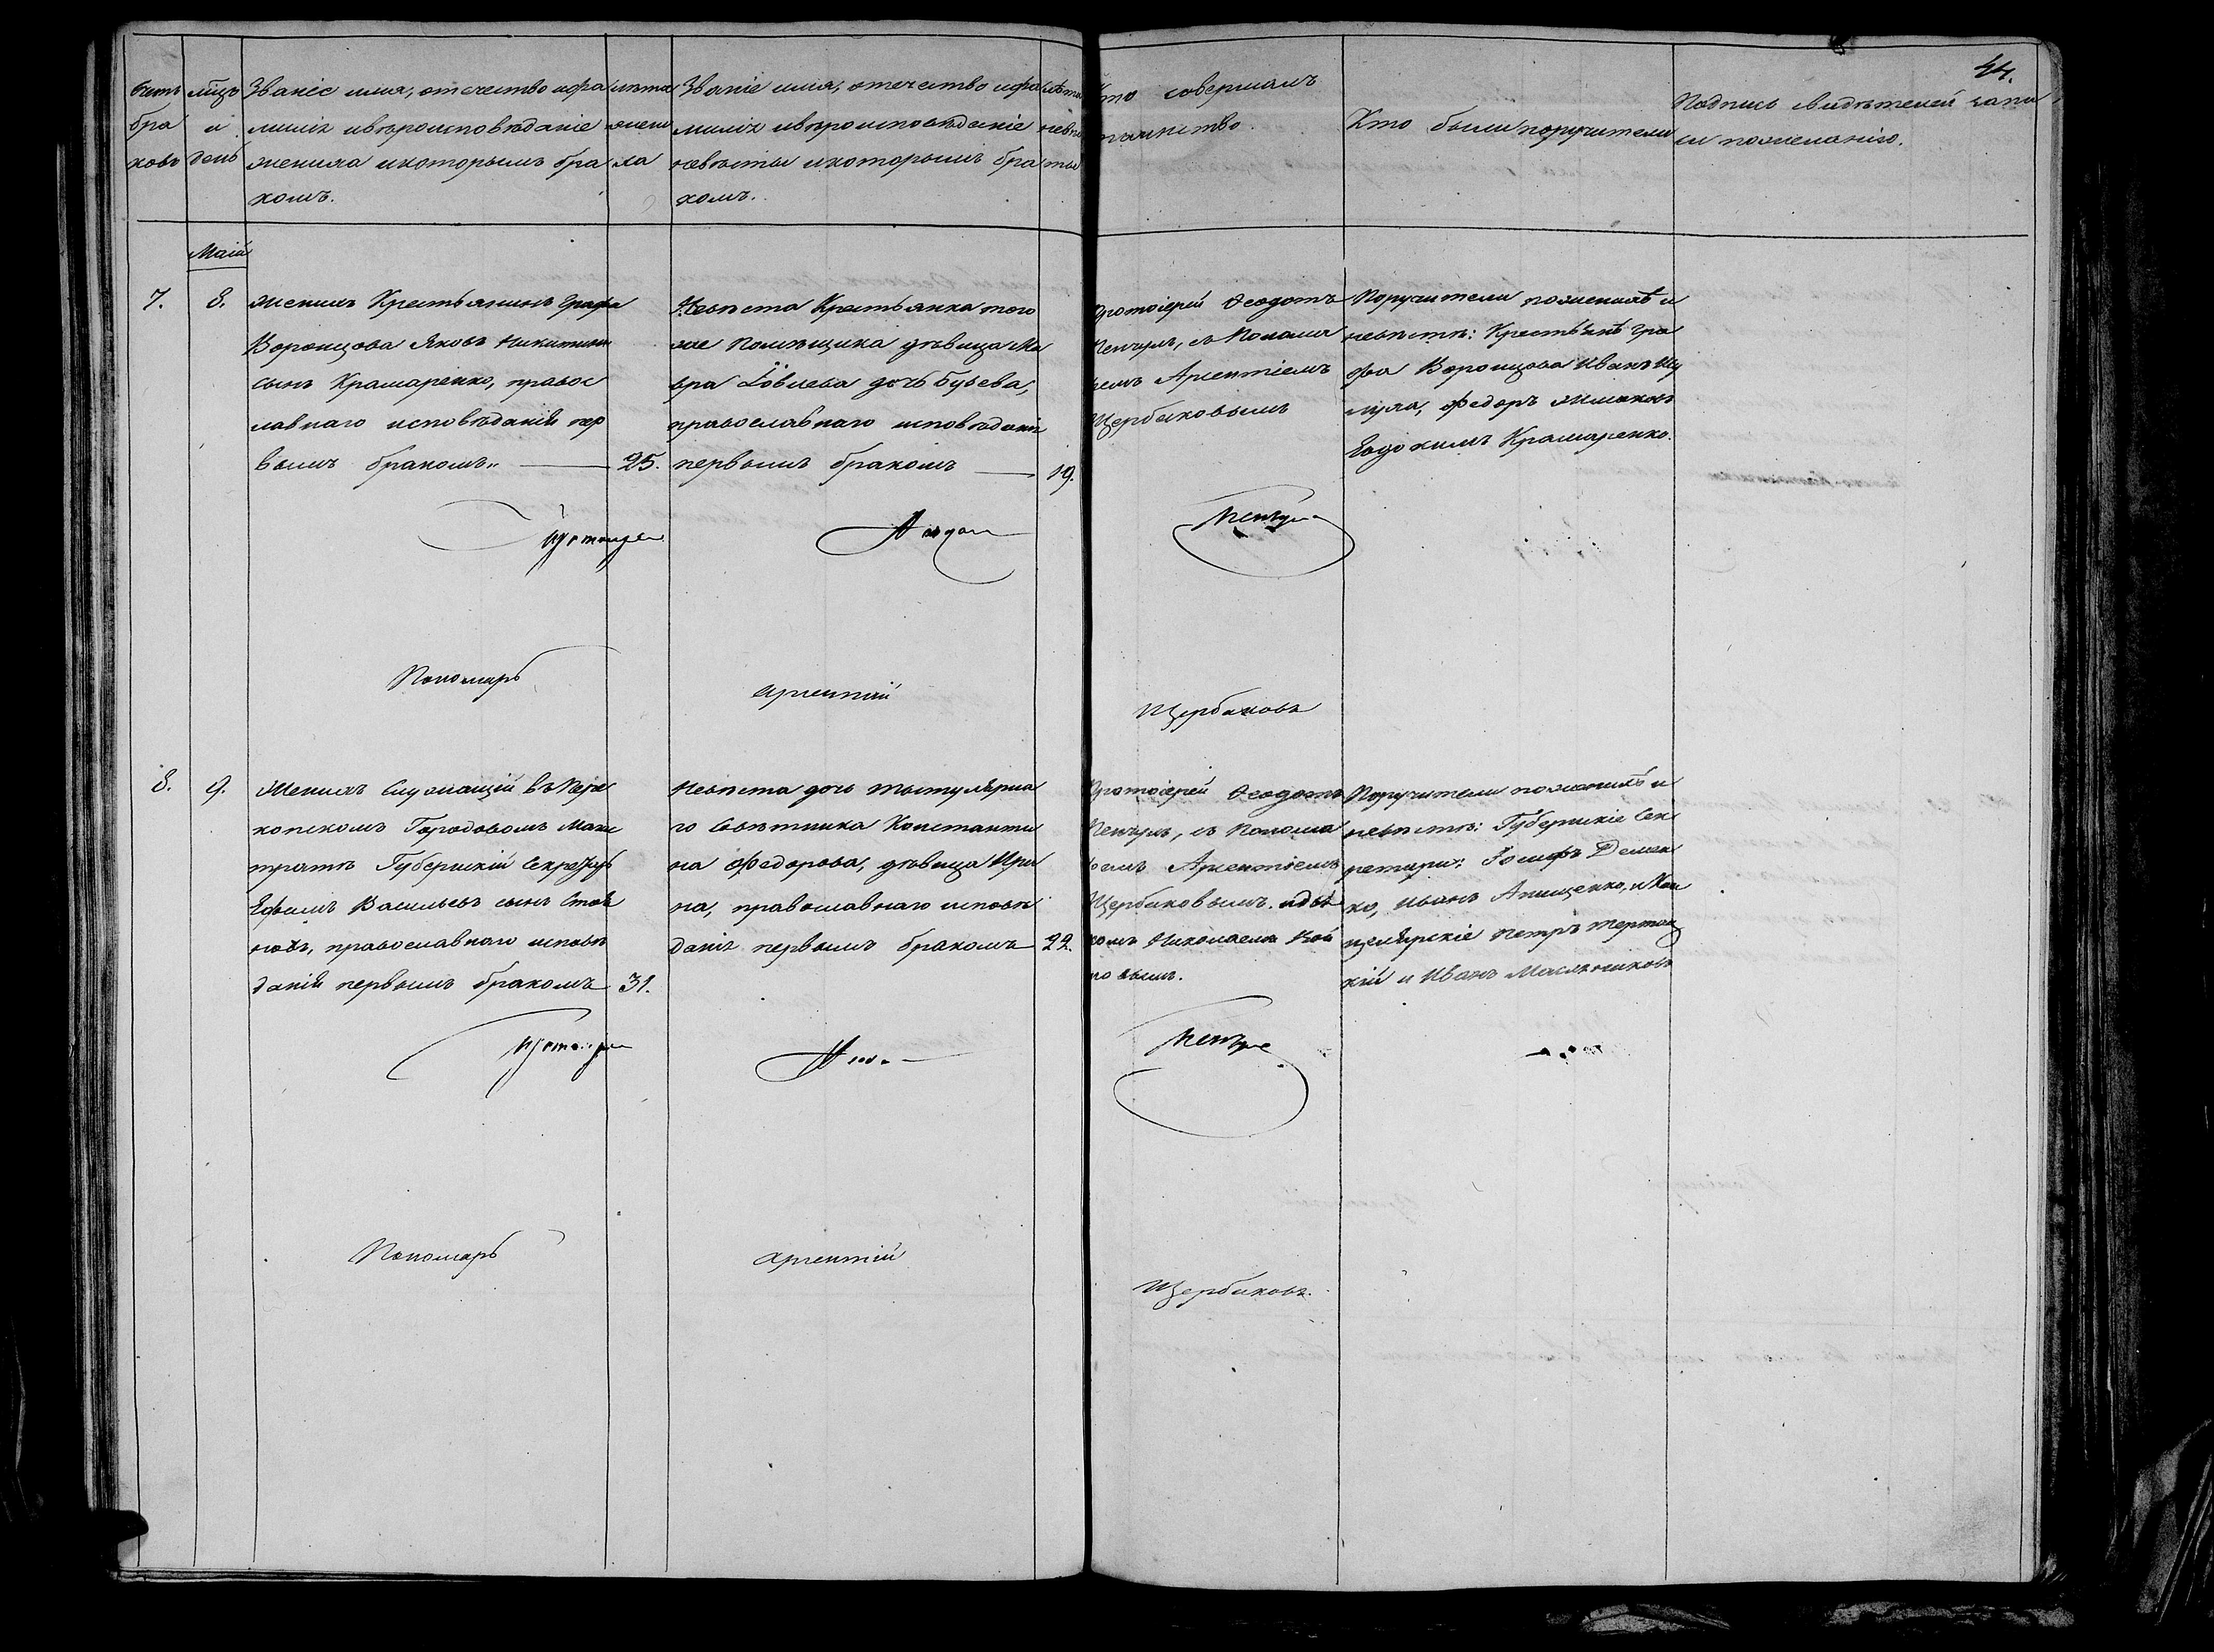 44.
Счетъ браковъ
Мцъ и день
Званіе имя, отечество и фа
миліи и вѣроисповѣданіе
жениха и которымъ бра
комъ.
лѣта жениха
Званіе имя, отечество и фа
миліи и вѣроисповѣданіе
невѣсты и которымъ бра
комъ.
лѣта невѣсты
Кто совершалъ
таинство.
Кто были поручители
Подпись свидѣтелей запи
си по желанію.
Маій
7.
8.
Женихъ Крестьянинъ Графа
Воронцова Яковъ Никитинъ
сынъ Крамаренко, правос
лавнаго исповѣданія пер
вымъ бракомъ
25.
Невѣста Крестьянка того
же Помѣщика дѣвица Ма
вра Іовлева дочь Буьева,
православнаго исповѣданія
первымъ бракомъ
19.
Протоіерей Ѳеодотъ
съ Понама
ремъ Арсентіемъ
Щербаковымъ
Поручители по женихѣ и
невѣстѣ: Крестьянѣ гра
фа Воронцова Иванъ
Федоръ
Евдокимъ Крамаренко.
Пономарь
Арсентій
Щербаковъ
8.
9.
Женихъ Служащій въ Пере
копскомъ Городовомъ Маги
стратѣ Губернскій Секретарь
Ефимъ Васильевъ сынъ
православнаго исповѣ
данія первымъ бракомъ
31.
Невѣста дочь Тытулярна
го Совѣтника Константи
на Федорова, дѣвица Ири
на, православнаго исповѣ
данія первымъ бракомъ
22.
Протоіерей Ѳеодотъ
съ Понома
ремъ Арсентіемъ
Щербаковымъ. и дья
комъ Николаемъ Вой
новымъ.
Поручители по женихѣ и
невѣстѣ: Губернскіе Сек
ретари: Іосифъ Демен
ко, Иванъ Анищенко, и Кан
целярскіе Петръ
кій и Иванъ Масляниковъ
Пономарь
Арсентій
Щербаковъ.